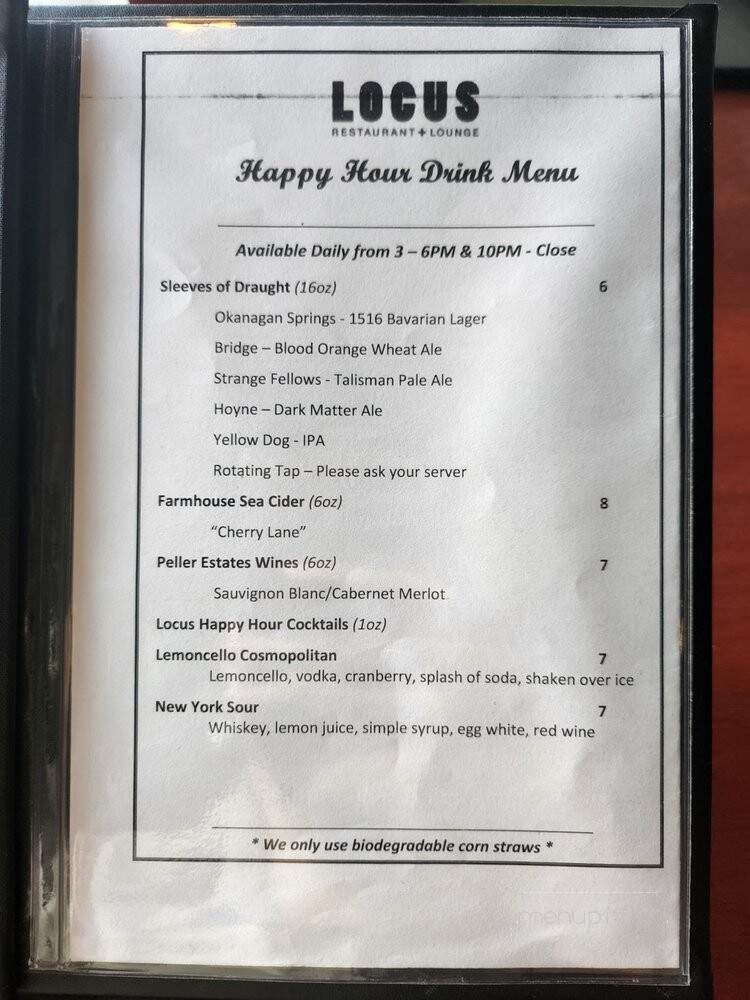 LOCUS
RESTAURANT + LOUNGE
Happy Hour Drink Menu
Available Daily from 3 – 6PM & 10PM - Close
Sleeves of Draught (16oz) 6
Okanagan Springs - 1516 Bavarian Lager
Bridge – Blood Orange Wheat Ale
Strange Fellows - Talisman Pale Ale
Hoyne – Dark Matter Ale
Yellow Dog - IPA
Rotating Tap – Please ask your server
Farmhouse Sea Cider (6oz) 8
“Cherry Lane”
Peller Estates Wines (6oz) 7
Sauvignon Blanc/Cabernet Merlot
Locus Happy Hour Cocktails (1oz)
Lemoncello Cosmopolitan 7
Lemoncello, vodka, cranberry, splash of soda, shaken over ice
New York Sour 7
Whiskey, lemon juice, simple syrup, egg white, red wine
* We only use biodegradable corn straws *